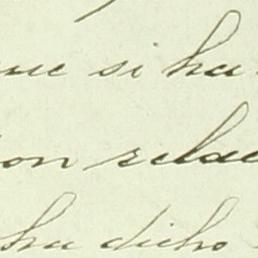 que si ha
on relac
ha dicho